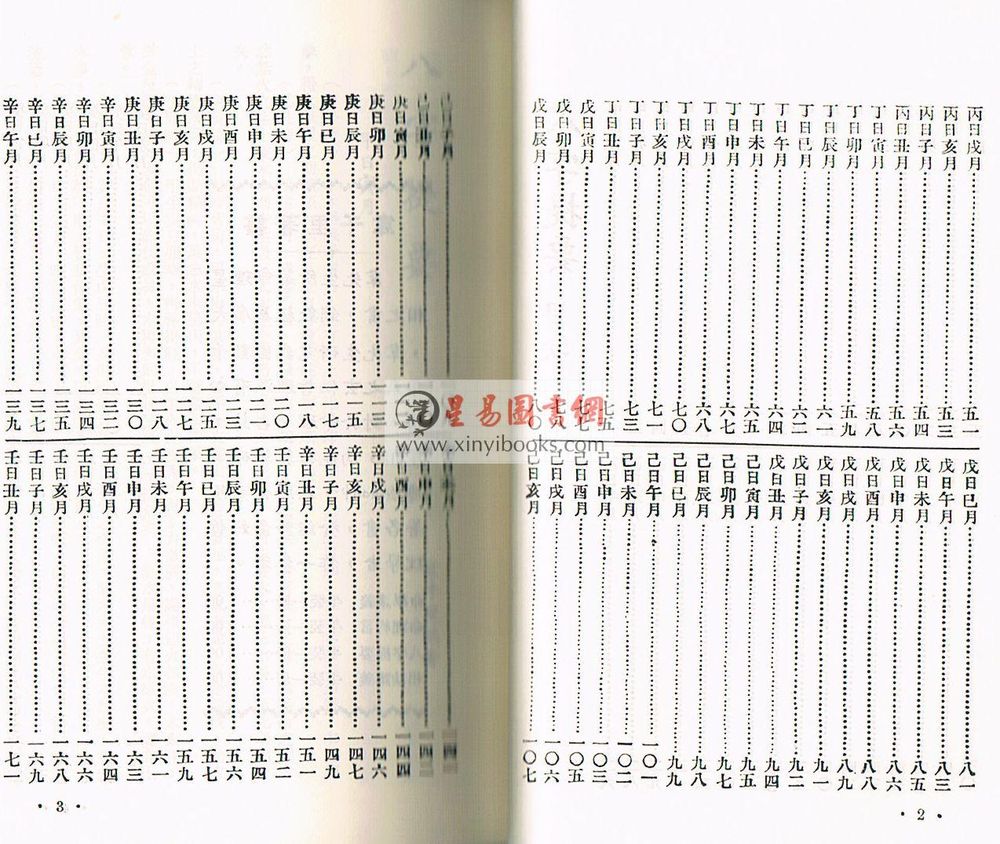 丙日戌月 五一
丙日亥月 五三
丙日子月 五五
丙日丑月 五六
丁日寅月 五八
丁日卯月 五九
丁日辰月 六一
丁日巳月 六二
丁日午月 六四
丁日未月 六五
丁日申月 六七
丁日酉月 六八
丁日戌月 七〇
丁日亥月 七一
丁日子月 七三
丁日丑月 七五
戊日寅月 七七
戊日卯月 七八
戊日辰月 八〇
戊日巳月 八一
戊日午月 八三
戊日未月 八五
戊日申月 八六
戊日酉月 八八
戊日戌月 八九
戊日亥月 九一
戊日子月 九二
戊日丑月 九四
己日寅月 九五
己日卯月 九六
己日辰月 九八
己日巳月 九九
己日午月 一〇一
己日未月 一〇二
己日申月 一〇三
己日酉月 一〇五
己日戌月 一〇六
己日亥月 一〇七
• 2 •
己日子月
己日丑月
庚日寅月
庚日卯月 一一三
庚日辰月 一一五
庚日巳月 一一七
庚日午月 一一八
庚日未月 一二〇
庚日申月 一二一
庚日酉月 一二三
庚日戌月 一二五
庚日亥月 一二七
庚日子月 一二八
庚日丑月 一三〇
辛日寅月 一三二
辛日卯月 一三四
辛日辰月 一三五
辛日巳月 一三七
辛日午月 一三九
辛日申月
辛日酉月 一四四
辛日戌月 一四六
辛日亥月 一四七
辛日子月 一四九
辛日丑月 一五一
壬日寅月 一五二
壬日卯月 一五四
壬日辰月 一五六
壬日巳月 一五七
壬日午月 一五九
壬日未月 一六一
壬日申月 一六三
壬日酉月 一六四
壬日戌月 一六六
壬日亥月 一六八
壬日子月 一六九
壬日丑月 一七一
• 3 •
星易圖書網
www.xinyibooks.com